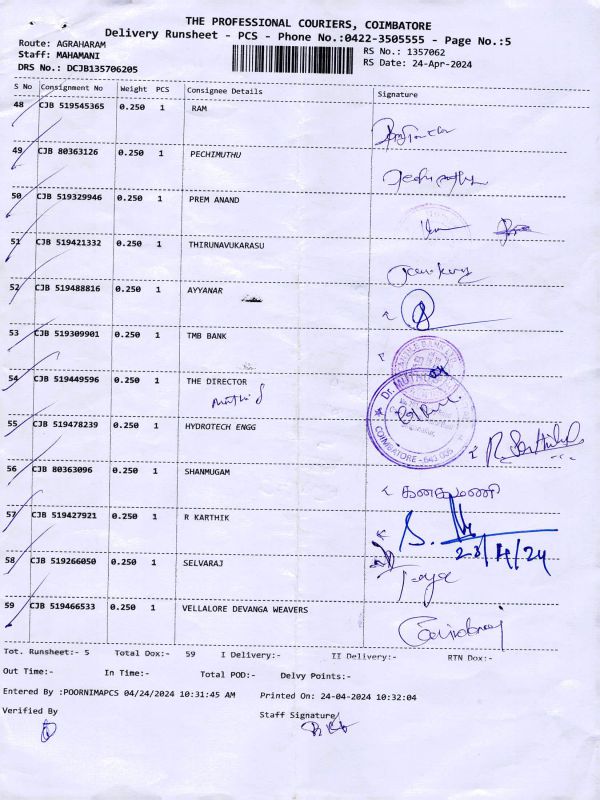 THE PROFESSIONAL COURIERS, COIMBATORE
Delivery Runsheet - PCS - Phone No.:0422-3505555 - Page No.:5
Route: AGRAHARAM
Staff: MAHAMANI
DRS No.: DCJB135706205
RS No.: 1357062
RS Date: 24-Apr-2024
S No Consignment No Weight PCS Consignee Details Signature
48 CJB 519545365 0.250 1 RAM
49 CJB 80363126 0.250 1 PECHIMUTHU
50 CJB 519329946 0.250 1 PREM ANAND
51 CJB 519421332 0.250 1 THIRUNAVUKARASU
52 CJB 519488816 0.250 1 AYYANAR
53 CJB 519309901 0.250 1 TMB BANK
54 CJB 519449596 0.250 1 THE DIRECTOR
COIMBATORE
55 CJB 519478239 0.250 1 HYDROTECH ENGG
56 CJB 80363096 0.250 1 SHANMUGAM
கனகமணி
57 CJB 519427921 0.250 1 R KARTHIK
23/4/24
58 CJB 519266050 0.250 1 SELVARAJ
59 CJB 519466533 0.250 1 VELLALORE DEVANGA WEAVERS
Tot. Runsheet:- 5 Total Dox:- 59 I Delivery:- II Delivery:- RTN Dox:-
Out Time:- In Time:- Total POD:- Delvy Points:-
Entered By :POORNIMAPCS 04/24/2024 10:31:45 AM Printed On: 24-04-2024 10:32:04
Verified By
Staff Signature